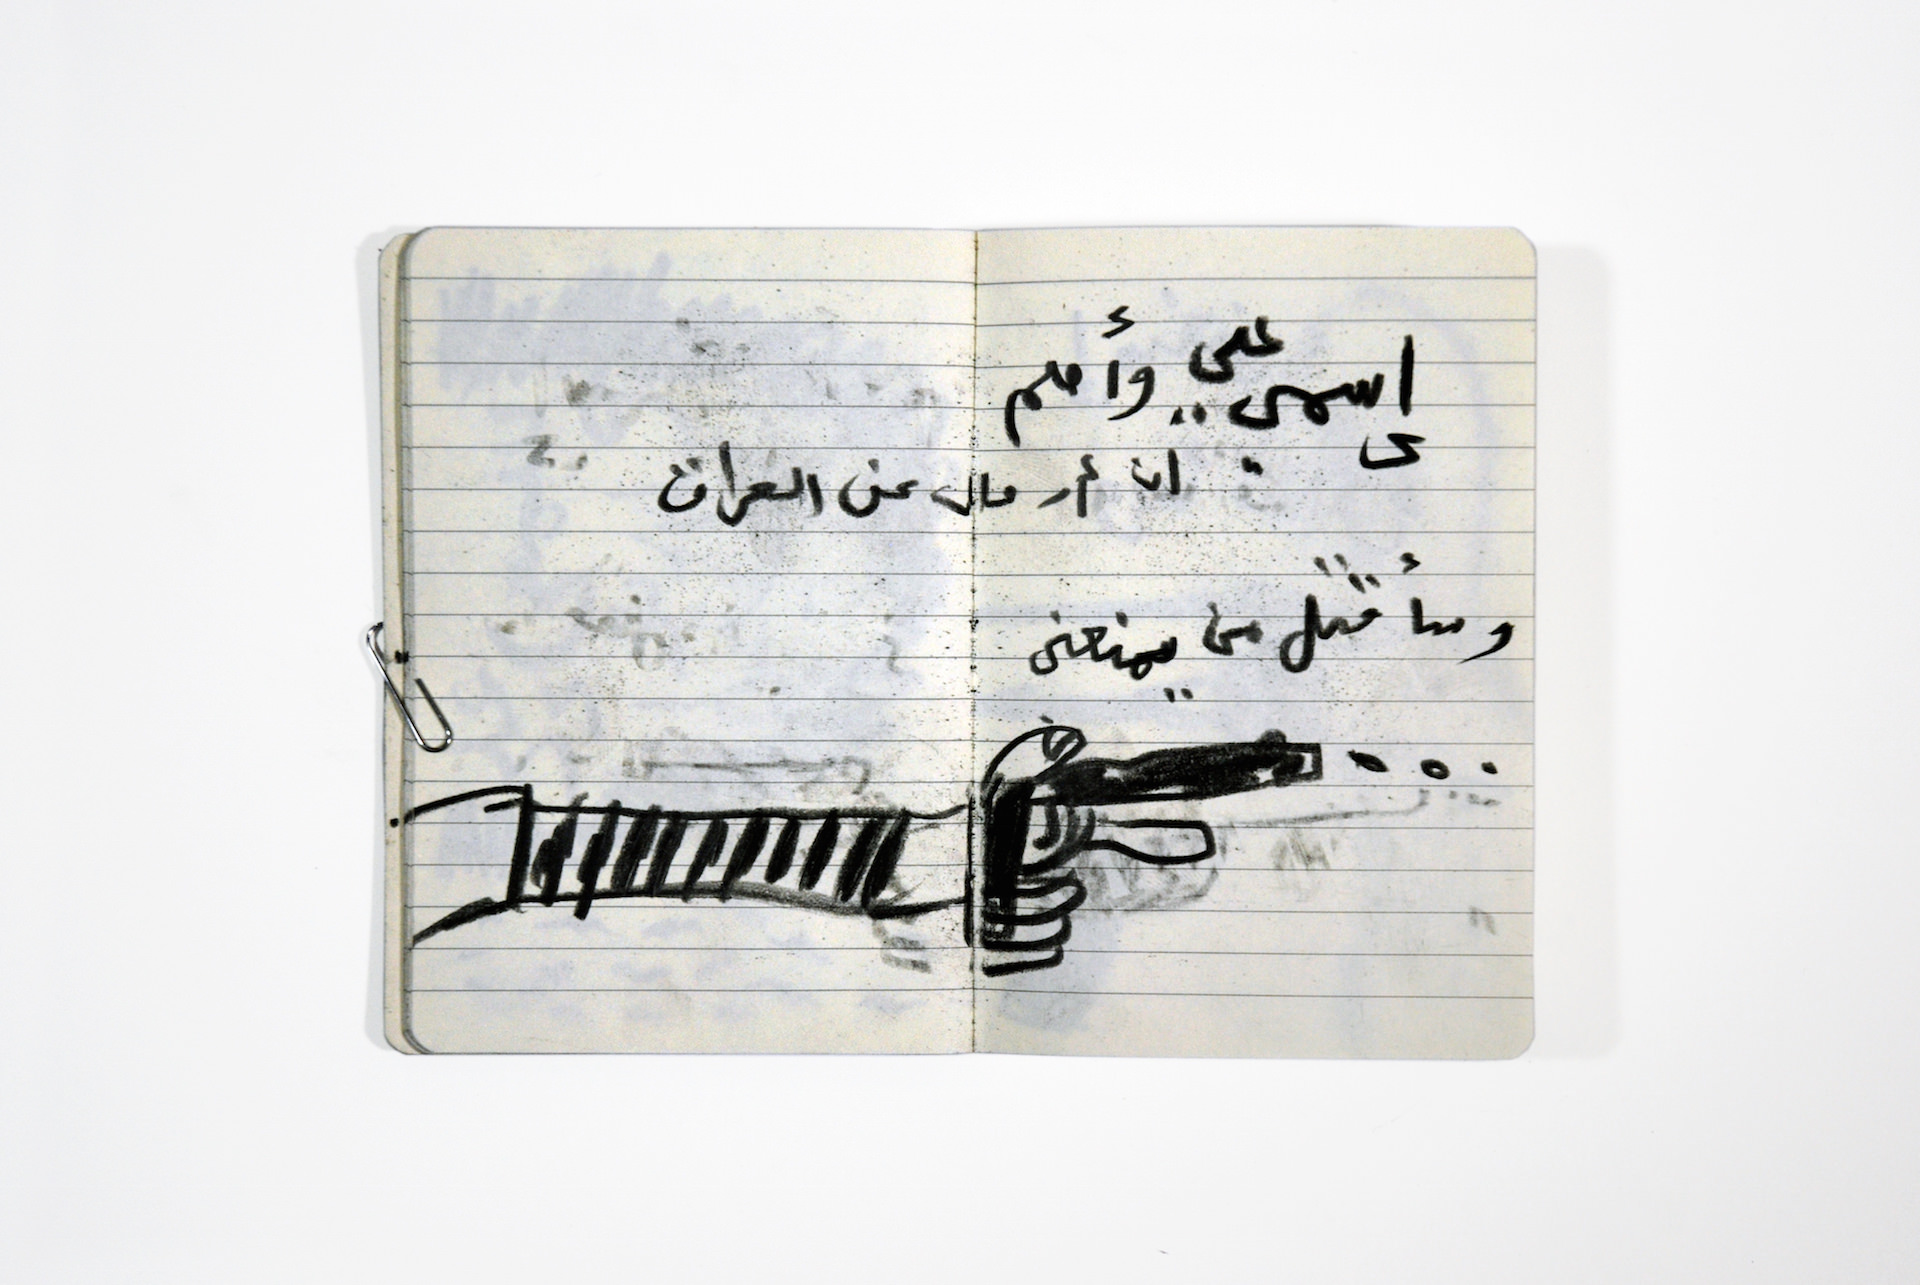 اسمي علي .. وأحلم
ان أرحل عن العراق
وسأقتل من يمنعني